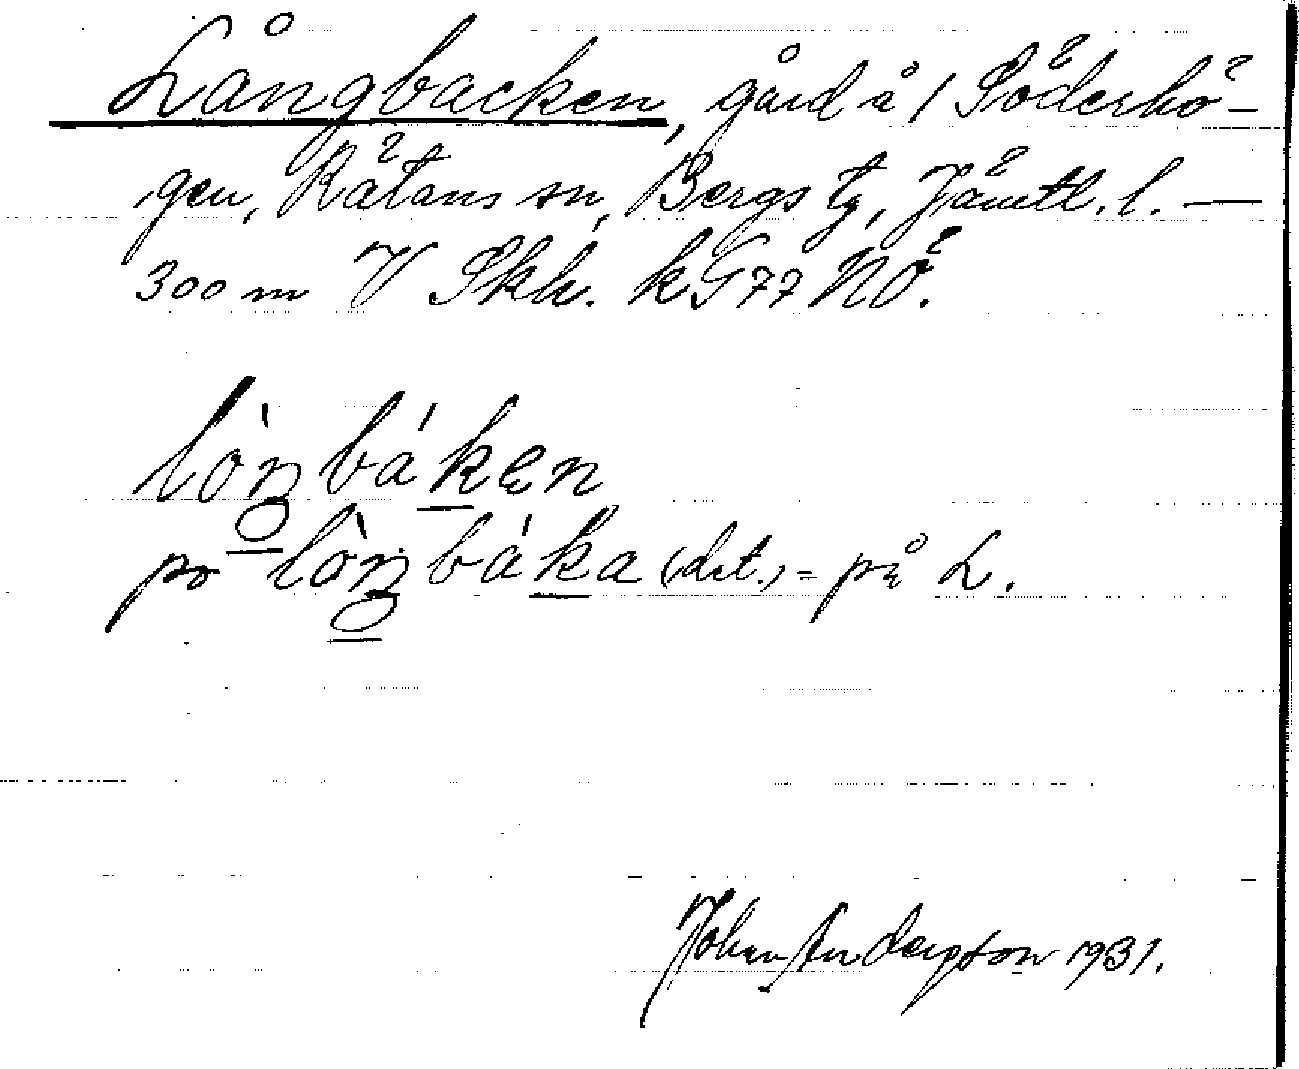 Långbacken, gård å / Söderhö-
gen, Rätans sn, Bergs tg, Jämtl. l. —
300 m V Skh. kG77 NÖ.
lòŋbákęn
po lòŋbáka (dat.) = på L.
Johan Andersson 1931.